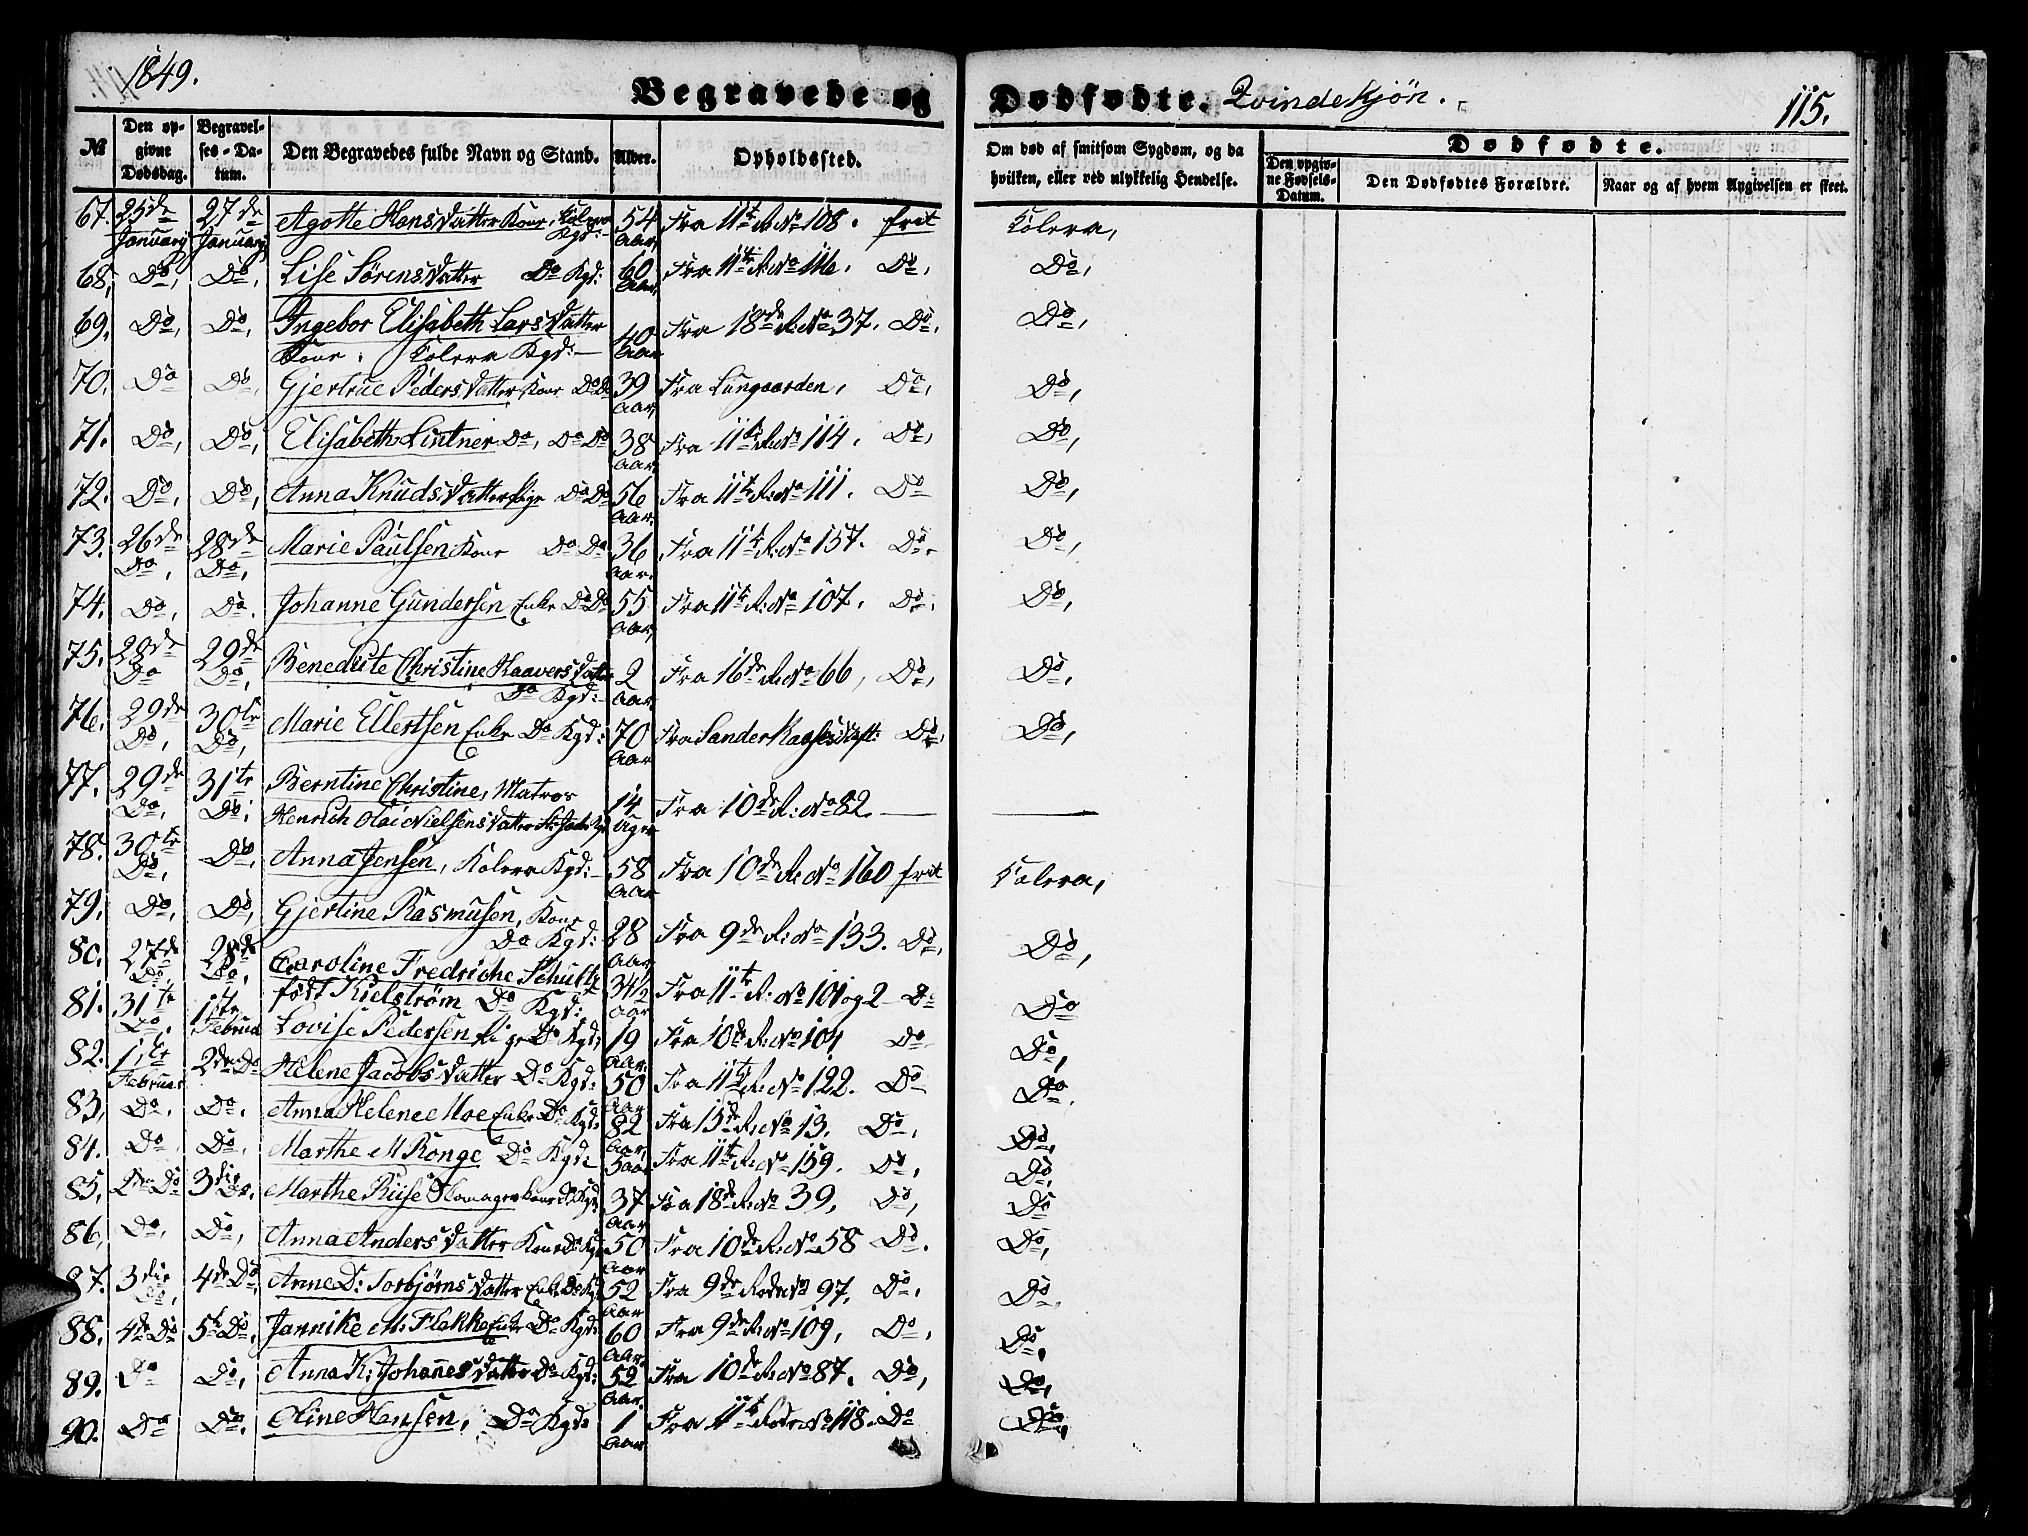 1849.
Begravede og Dødfødte. Qvindekjøn.
115.
№ | Den opgivne Dødsdag. | Begravelses-Datum. | Den Begravedes fulde Navn og Stand. | Alder. | Opholdssted. | Om død af smitsom Sygdom, og da hvilken, eller ved ulykkelig Hendelse. | Dødfødte. | Den opgivne Fødsels-Datum. | Den Dødfødtes Forældre. | Naar og af hvem Angivelsen er skeet.
67. 25de January 27de January Agotte Hansdatter Kone Kolera Kgd: 54 Aar, Fra 11te R: No 108. frit Kolera,
68, Do, Do, Lise Sørensdatter Do Kgd: 60 Aar, Fra 11te R: No 116. Do, Do,
69. Do, Do, Ingebor Elisabeth Larsdatter
Kone, Kolera Kgd: 40 Aar Fra 18de R: No 37. Do, Do,
70. Do Do, Gjertrue Pedersdatter Kone Do Do 39 Aar, Fra Lungaarden, Do, Do,
71. Do, Do, Elisabeth Lintner Do, Do Do 38 Aar, Fra 11te R: No 114. Do, Do,
72. Do, Do, Anna Knudsdatter Pige Do Do 56 Aar, Fra 11te R: No 111. Do Do,
73. 26de Do, 28de Do, Marie Paulsen Kone Do Do 36 Aar. Fra 11te R: No 157. Do. Do,
74. Do, Do. Johanne Gundersen Enke Do Do 55 Aar, Fra 11te R: No 107. Do. Do,
75. 28de Do 29de Do, Benedicte Christine Haaversdatter
Do Kgd: 2 Aar. Fra 16de R: No 66, Do, Do,
76. 29de Do, 30te Do, Marie Ellertsen Enke Do Kgd: 70 Aar Fra Sander Do Do,
77. 29de Do, 31te Do, Berntine Christine, Matros
Henrich Olai Nielsens datter 14 Fra 10de R: No 82.
78. 30te Do, Do, Anna Jensen, Kolera Kgd: 58 Aar Fra 10de R: No 160 frit Kolera,
79. Do, Do, Gjertine Rasmusen, Kone
Do Kgd: 28 Aar, Fra 9de R: No 133. Do, Do,
80. 27de Do, 28de Do, Caroline Fredriche Schultz
født Kielstrøm Do Kgd: 34½ Aar Fra 11te R: No 101 og 2 Do Do
81. 31te Do, 1ste Februa Lovise Pedersen Pige Do Kgd: 19 Aar, Fra 10de R: No 104 Do. Do,
82. 1ste Februar 2den Do Helene Jacobsdatter Do Kgd: 50 Aar Fra 11te R: No 122. Do Do.
83, Do. Do. Anna Helene Moe Enke Do Kgd: 82 Aar, Fra 15de R: No 13. Do. Do,
84. Do Do. Marthe M Ronge Do Kgd: 5 aar Fra 11te R: No 159. Do, Do,
85, 2den Do 3die Do. Marthe Riise kone Do Kgd: 37 Aar Fra 18de R: No 39, Do, Do
86, Do, Do, Anna Andersdatter Kone Do Kgd 50 Aar Fra 10de R: No 58 Do. Do,
87. 3die Do, 4de Do, Anne D: Torbjørnsdatter Enke Do Kgd 52 Aar Fra 9de Rode No 97, Do. Do.
88. 4de Do 5te Do. Jannike M: Flakke Enke Do Kgd: 60 Aar. Fra 9de R: No 109, Do, Do,
89. Do Do, Anna K: Johannesdatter Do Kgd: 52 Aar. Fra 10de R: No 87. Do, Do,
90. Do Do. Oline Hensen, Do Kgd: 1 Aar Fra 11te Rode No 118. Do Do,